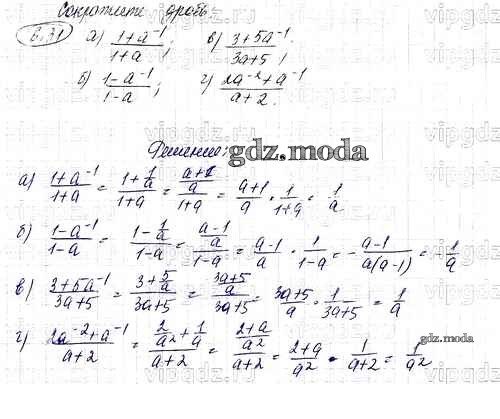 Сократить дробь
6.31 а) \frac{1+a^{-1}}{1+a}; в) \frac{3+5a^{-1}}{3a+5};
б) \frac{1-a^{-1}}{1-a}; г) \frac{2a^{-2}+a^{-1}}{a+2}.
Решение: gdz.moda
а) \frac{1+a^{-1}}{1+a} = \frac{1+\frac{1}{a}}{1+a} = \frac{\frac{a+1}{a}}{1+a} = \frac{a+1}{a} · \frac{1}{1+a} = \frac{1}{a}
б) \frac{1-a^{-1}}{1-a} = \frac{1-\frac{1}{a}}{1-a} = \frac{\frac{a-1}{a}}{1-a} = \frac{a-1}{a} · \frac{1}{1-a} = -\frac{a-1}{a(a-1)} = -\frac{1}{a}
в) \frac{3+5a^{-1}}{3a+5} = \frac{3+\frac{5}{a}}{3a+5} = \frac{\frac{3a+5}{a}}{3a+5} = \frac{3a+5}{a} · \frac{1}{3a+5} = \frac{1}{a}
г) \frac{2a^{-2}+a^{-1}}{a+2} = \frac{\frac{2}{a^2}+\frac{1}{a}}{a+2} = \frac{\frac{2+a}{a^2}}{a+2} = \frac{2+a}{a^2} · \frac{1}{a+2} = \frac{1}{a^2}
gdz.moda